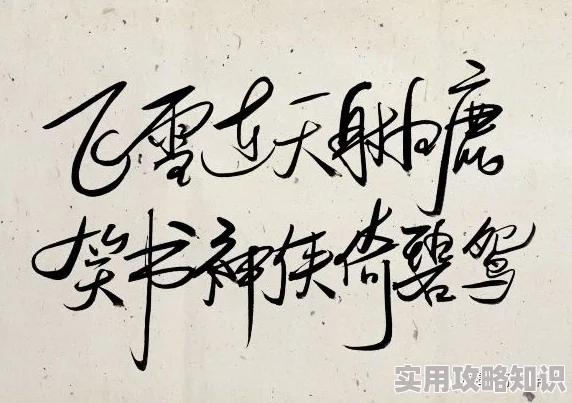 飞雪连天射白鹿
笑书神侠倚碧鸳
实用攻略知识